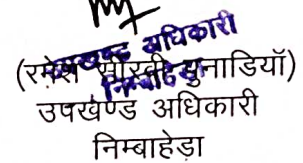 उपखण्ड अधिकारी
निम्बाहेड़ा
(रमेश सीरवी पुनाडियॉ)
उपखण्ड अधिकारी
निम्बाहेडा